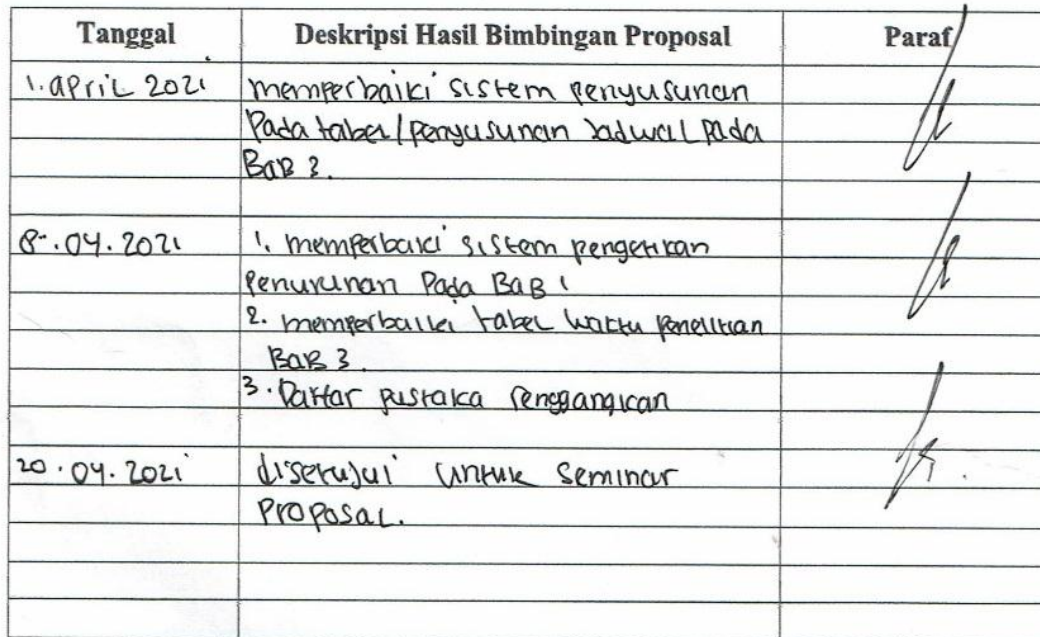 Tanggal Deskripsi Hasil Bimbingan Proposal Paraf
1. april 2021 memperbaiki sistem penyusunan
Pada tabel/penyusunan Jadwal pada
BaB 3.
8-.04.2021 1. memperbaiki sistem pengetikan
penurunan Pada BaB 1
2. memperbaiki tabel waktu penelitian
BaB 3.
3. Daftar pustaka
20.04.2021 disetujui untuk seminar
Proposal.